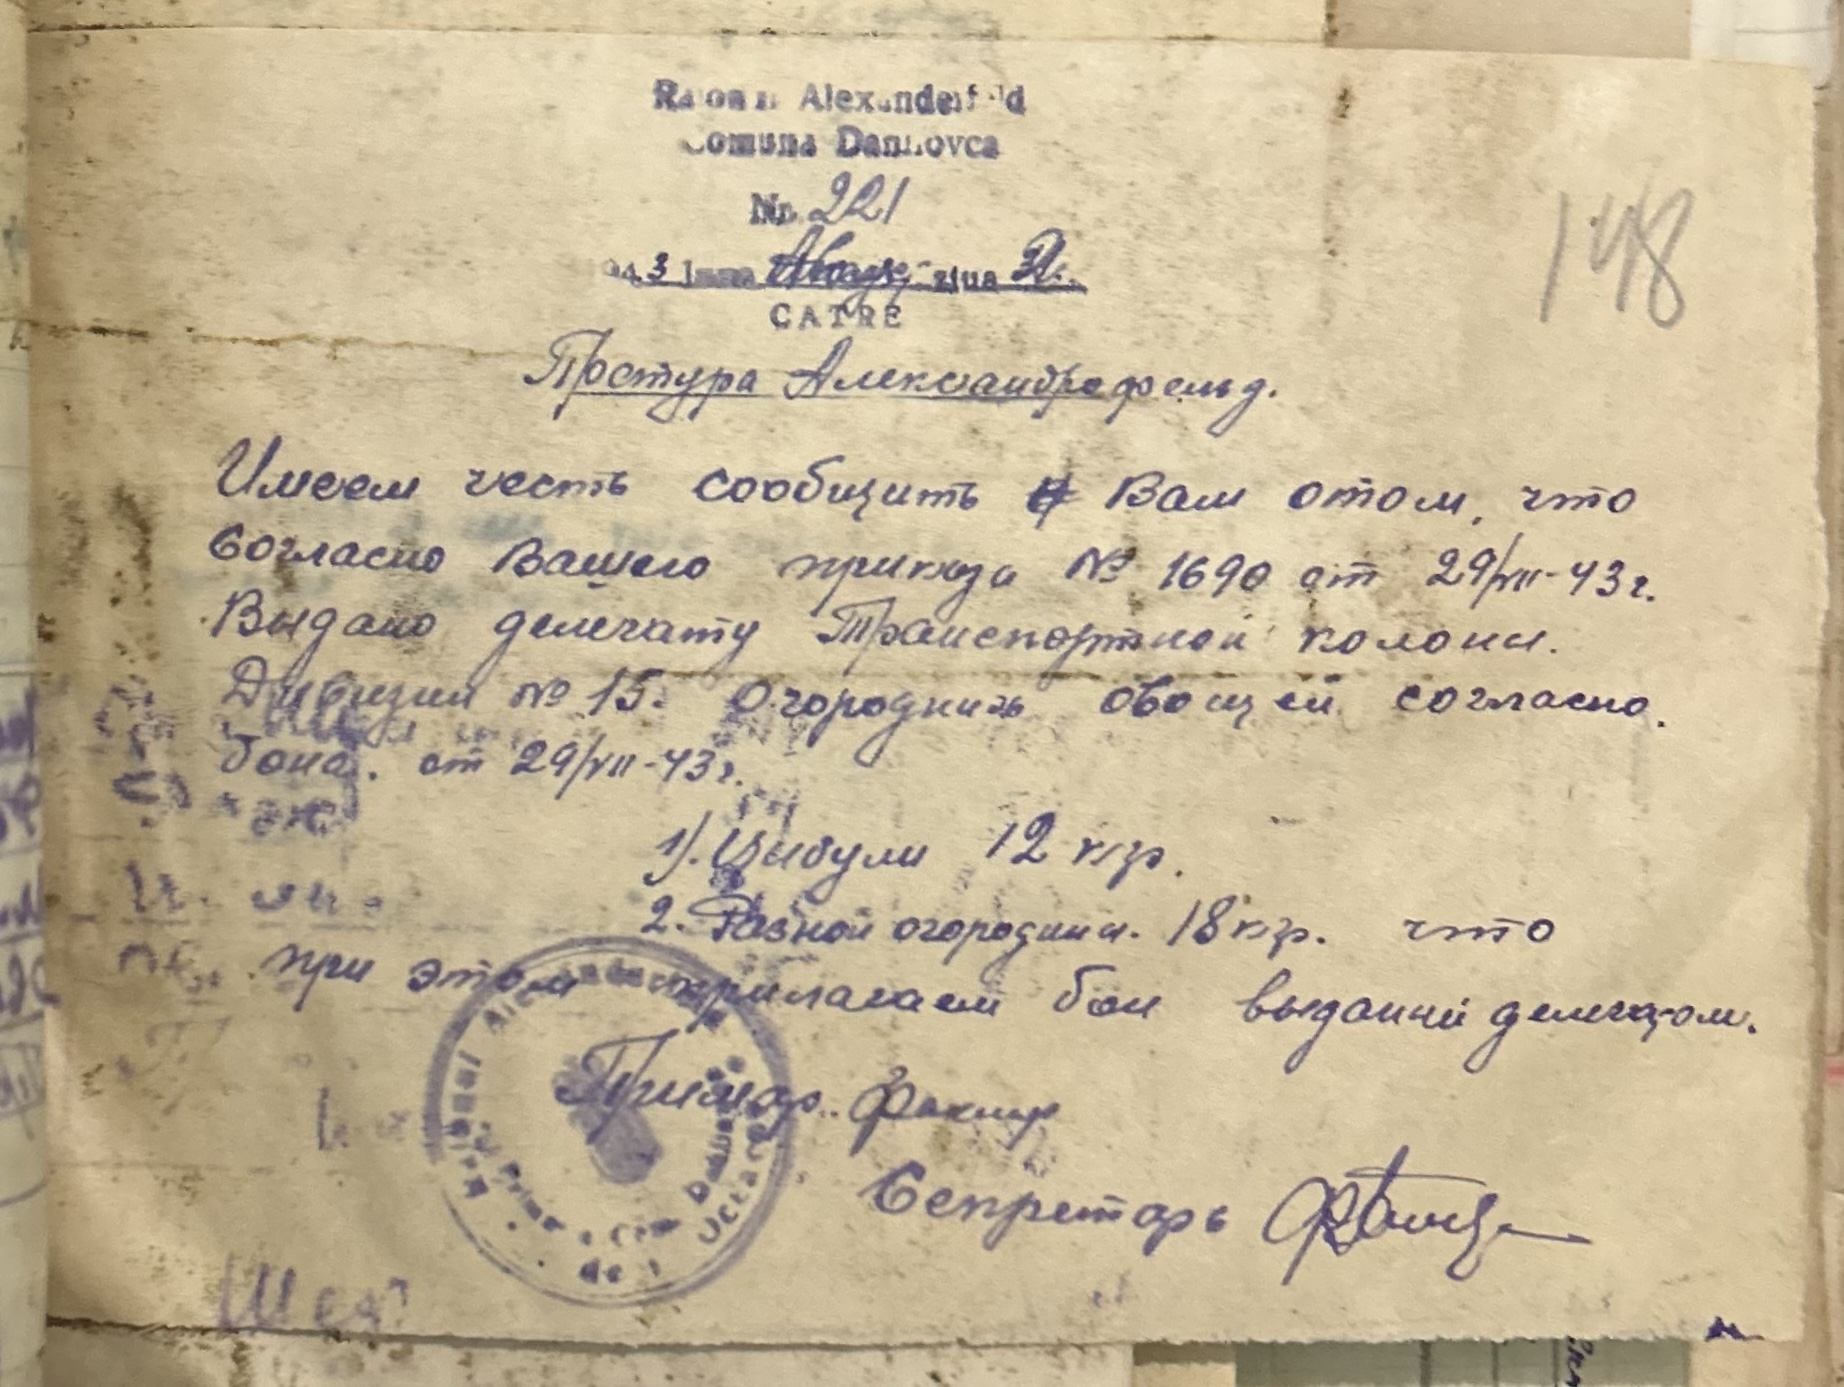 Raionul Alexanderfeld
Comuna Dannovca
No 221
1943 luna Август ziua 2
CATRE
Претура Александрофельд.
148
Имеем честь сообщить Вам отом, что
Согласно Вашего приказа № 1690 от 29/VII-43 г.
Выдано делегату Транспортной колоны.
Дивизии № 15. Огороднихь овощей согласно.
бона. от 29/VII-43 г.
1). Цыбули 12 кгр.
2. Разной огородини. 18 кгр. что
при этом прилагаем бон выданий делегатом.
Примар.
Секретарь